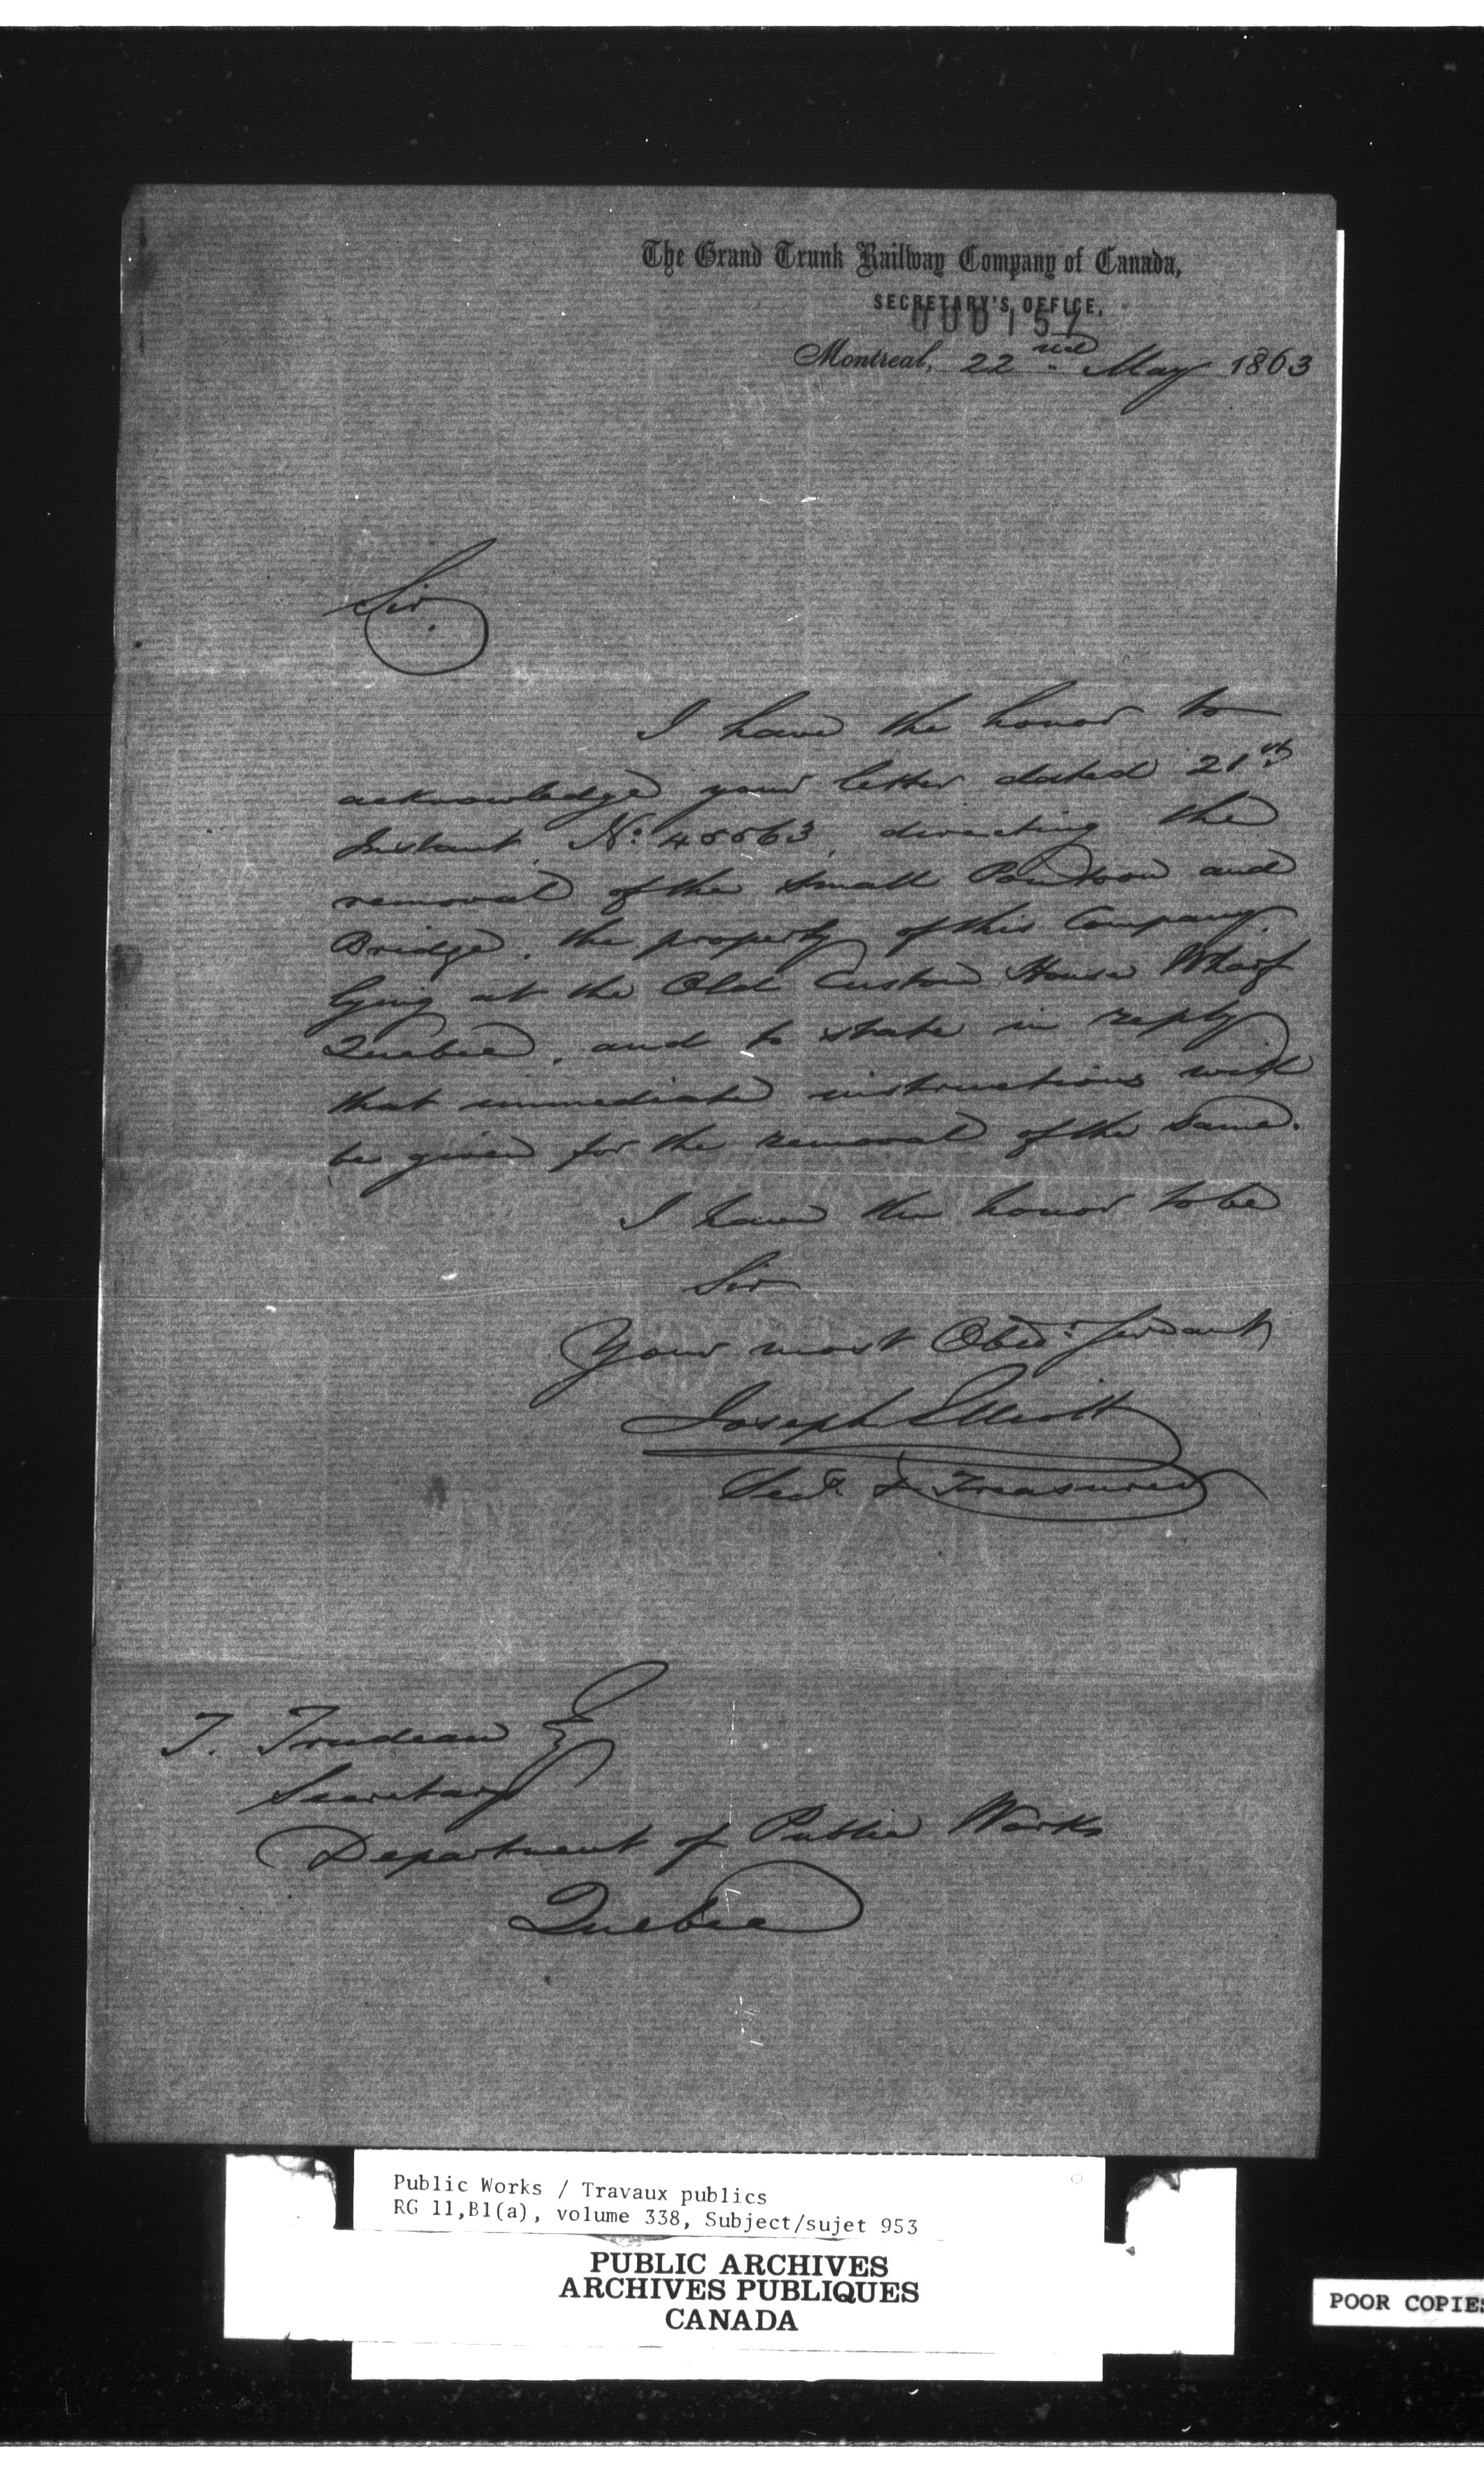 The Grand Trunk Railway Company of Canada,
SECRETARY'S OFFICE,
000157
Montreal, 22nd May 1863
Sir
I have the honor to
acknowledge your letter dated 21st
Instant, No: 45563, directing the
removal of the small Pontoon and
Bridge, the property of this Company
lying at the Old Custom House Wharf
Quebec, and to state in reply
that immediate instructions will
be given for the removal of the same.
I have the honor to be
Sir
Your most Obedt: Servant
Joseph Elliott
Secy. & Treasurer
T. Trudeau Esq
Secretary
Department of Public Works
Quebec
Public Works / Travaux publics
RG 11,B1(a), volume 338, Subject/sujet 953
PUBLIC ARCHIVES
ARCHIVES PUBLIQUES
CANADA
POOR COPIES